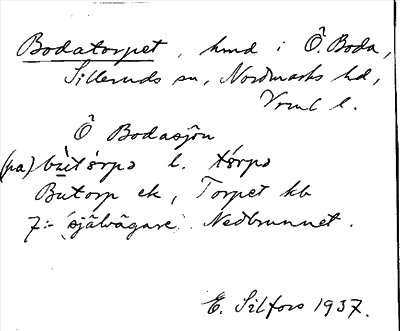 Bodatorpet, hmd i Ö. Boda,
Silleruds sn, Nordmarks hd,
Vrml l.
Ö Bodasjön
(pa) bùtǻrpə l. tǻrpə
Butorp ek, Torpet kb
7:- självägare. Nedbrunnet.
E. Silfors 1937.